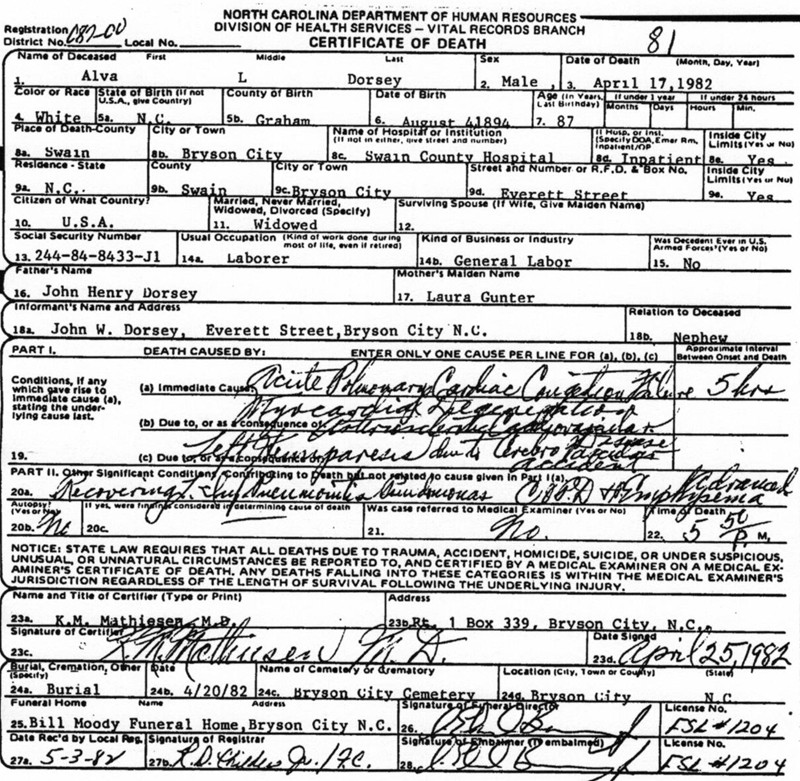 NORTH CAROLINA DEPARTMENT OF HUMAN RESOURCES
DIVISION OF HEALTH SERVICES – VITAL RECORDS BRANCH
Registration District No. 082-00 Local No. CERTIFICATE OF DEATH 81
Name of Deceased First Middle Last Sex Date of Death (Month, Day, Year)
1. Alva L Dorsey 2. Male , 3. April 17,1982
Color or Race State of Birth (If not U.S.A., give Country) County of Birth Date of Birth Age (In Years, Last Birthday) If under 1 year If under 24 hours
Months Days Hours Min.
4. White 5a. N.C. 5b. Graham 6. August 41894 7. 87
Place of Death-County City or Town Name of Hospital or Institution (If not in either, give street and number) If Hosp. or Inst. (Specify DOA, Emer Rm, Inpatient/OP Inside City Limits (Yes or No)
8a. Swain 8b. Bryson City 8c. Swain County Hospital 8d. Inpatient 8e. Yes
Residence - State County City or Town Street and Number or R.F.D. & Box No. Inside City Limits (Yes or No)
9a. N.C. 9b. Swain 9c. Bryson City 9d. Everett Street 9e. Yes
Citizen of What Country? Married, Never Married, Widowed, Divorced (Specify) Surviving Spouse (If Wife, Give Maiden Name)
10. U.S.A. 11. Widowed 12.
Social Security Number Usual Occupation (Kind of work done during most of life, even if retired) Kind of Business or Industry Was Decedent Ever in U.S. Armed Forces? (Yes or No)
13. 244-84-8433-J1 14a. Laborer 14b. General Labor 15. No
Father's Name Mother's Maiden Name
16. John Henry Dorsey 17. Laura Gunter
Informant's Name and Address Relation to Deceased
18a. John W. Dorsey, Everett Street,Bryson City N.C. 18b. Nephew
PART I. DEATH CAUSED BY: ENTER ONLY ONE CAUSE PER LINE FOR (a), (b), (c) Approximate Interval Between Onset and Death
Conditions, if any which gave rise to immediate cause (a), stating the underlying cause last.
(a) Immediate Cause Acute Pulmonary Cardiac Congestion Failure 5 hrs
Myocardial Degeneration
(b) Due to, or as a consequence of Cardiovascular Disease
19. (c) Due to, or as a consequence of Left Hemiparesis due to Cerebro Vascular accident
PART II. Other Significant Conditions Contributing to Death but not related to cause given in Part I(a)
20a. Recovering Pneumonia C.O.P.D. Advanced Emphysema
Autopsy? (Yes or No) If yes, were findings considered in determining cause of death Was case referred to Medical Examiner (Yes or No) Time of Death
20b. No 20c. 21. No. 22. 5 50 P. M,
NOTICE: STATE LAW REQUIRES THAT ALL DEATHS DUE TO TRAUMA, ACCIDENT, HOMICIDE, SUICIDE, OR UNDER SUSPICIOUS,
UNUSUAL, OR UNNATURAL CIRCUMSTANCES BE REPORTED TO, AND CERTIFIED BY A MEDICAL EXAMINER ON A MEDICAL EX-
AMINER'S CERTIFICATE OF DEATH. ANY DEATHS FALLING INTO THESE CATEGORIES IS WITHIN THE MEDICAL EXAMINER'S
JURISDICTION REGARDLESS OF THE LENGTH OF SURVIVAL FOLLOWING THE UNDERLYING INJURY.
Name and Title of Certifier (Type or Print) Address
23a. K.M. Mathiesen, M.D. 23b. Rt. 1 Box 339, Bryson City, N.C.,
Signature of Certifier Date Signed
23c. K.M. Mathiesen M.D. 23d. April 25, 1982
Burial, Cremation, Other (Specify) Date Name of Cemetery or Crematory Location (City, Town or County) (State)
24a. Burial 24b. 4/20/82 24c. Bryson City Cemetery 24d. Bryson City N.C.
Funeral Home Name Address Signature of Funeral Director License No.
25. Bill Moody Funeral Home,Bryson City N.C. 26. FSL #1204
Date Rec'd by Local Reg. Signature of Registrar Signature of Embalmer (If embalmed) License No.
27a. 5-3-82 27b. R.D. Childers Jr./F.C. 28. FSL #1204